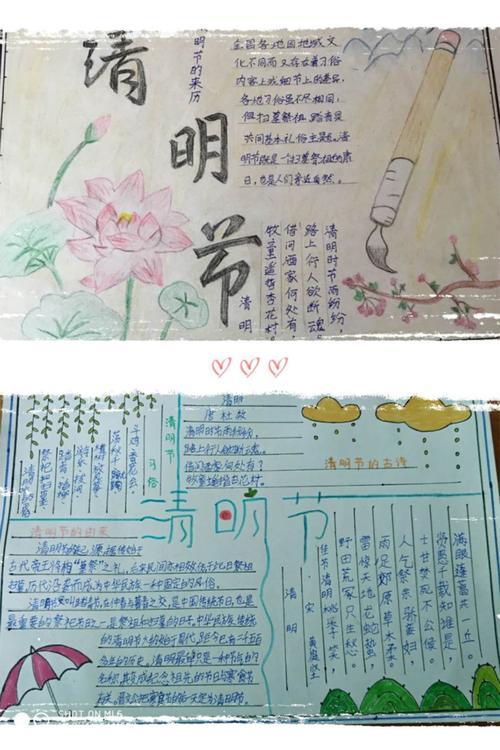 清
明
节
明节的来历
全国各地因地域文
化不同而又存在着习俗
内容上或细节上的差异,
各地习俗虽不尽相同,
但扫墓祭祖、踏青是
共同基本礼俗主题。清
明节既是一扫墓祭祖的肃
日,也是人们亲近自然。
清明时节雨纷纷,
路上行人欲断魂。
借问酒家何处有,
牧童遥指杏花村。
清明
清明节
习俗
斗鸡
荡秋千
踏青
清明
唐 杜牧
清明时节雨纷纷,
路上行人欲断魂。
借问酒家何处有?
牧童遥指杏花村。
清明节的古诗
清明节
清明节的由来
古代帝王将相"墓祭"之礼,
扫墓,历代沿袭而成为中华民族一种固定的风俗。
清明节又叫踏青节,在仲春与暮春之交,是中国传统节日,也是
最重要的祭祀节日之一是祭祖和扫墓的日子,中华民族传统
的清明节大约始于周代,距今已有二千五百
多年的历史,清明最早只是一种节气的
名称,其变成纪念祖先的节日与寒食节
有关。晋文公把寒食节的后一天定为清明节。
清明
宋 黄庭坚
佳节清明桃李笑,
野田荒冢只生愁。
雷惊天地龙蛇蛰,
雨足郊原草木柔。
人乞祭余骄妾妇,
士甘焚死不公侯。
贤愚千载知谁是,
满眼蓬蒿共一丘。
SHOT ON MI 6